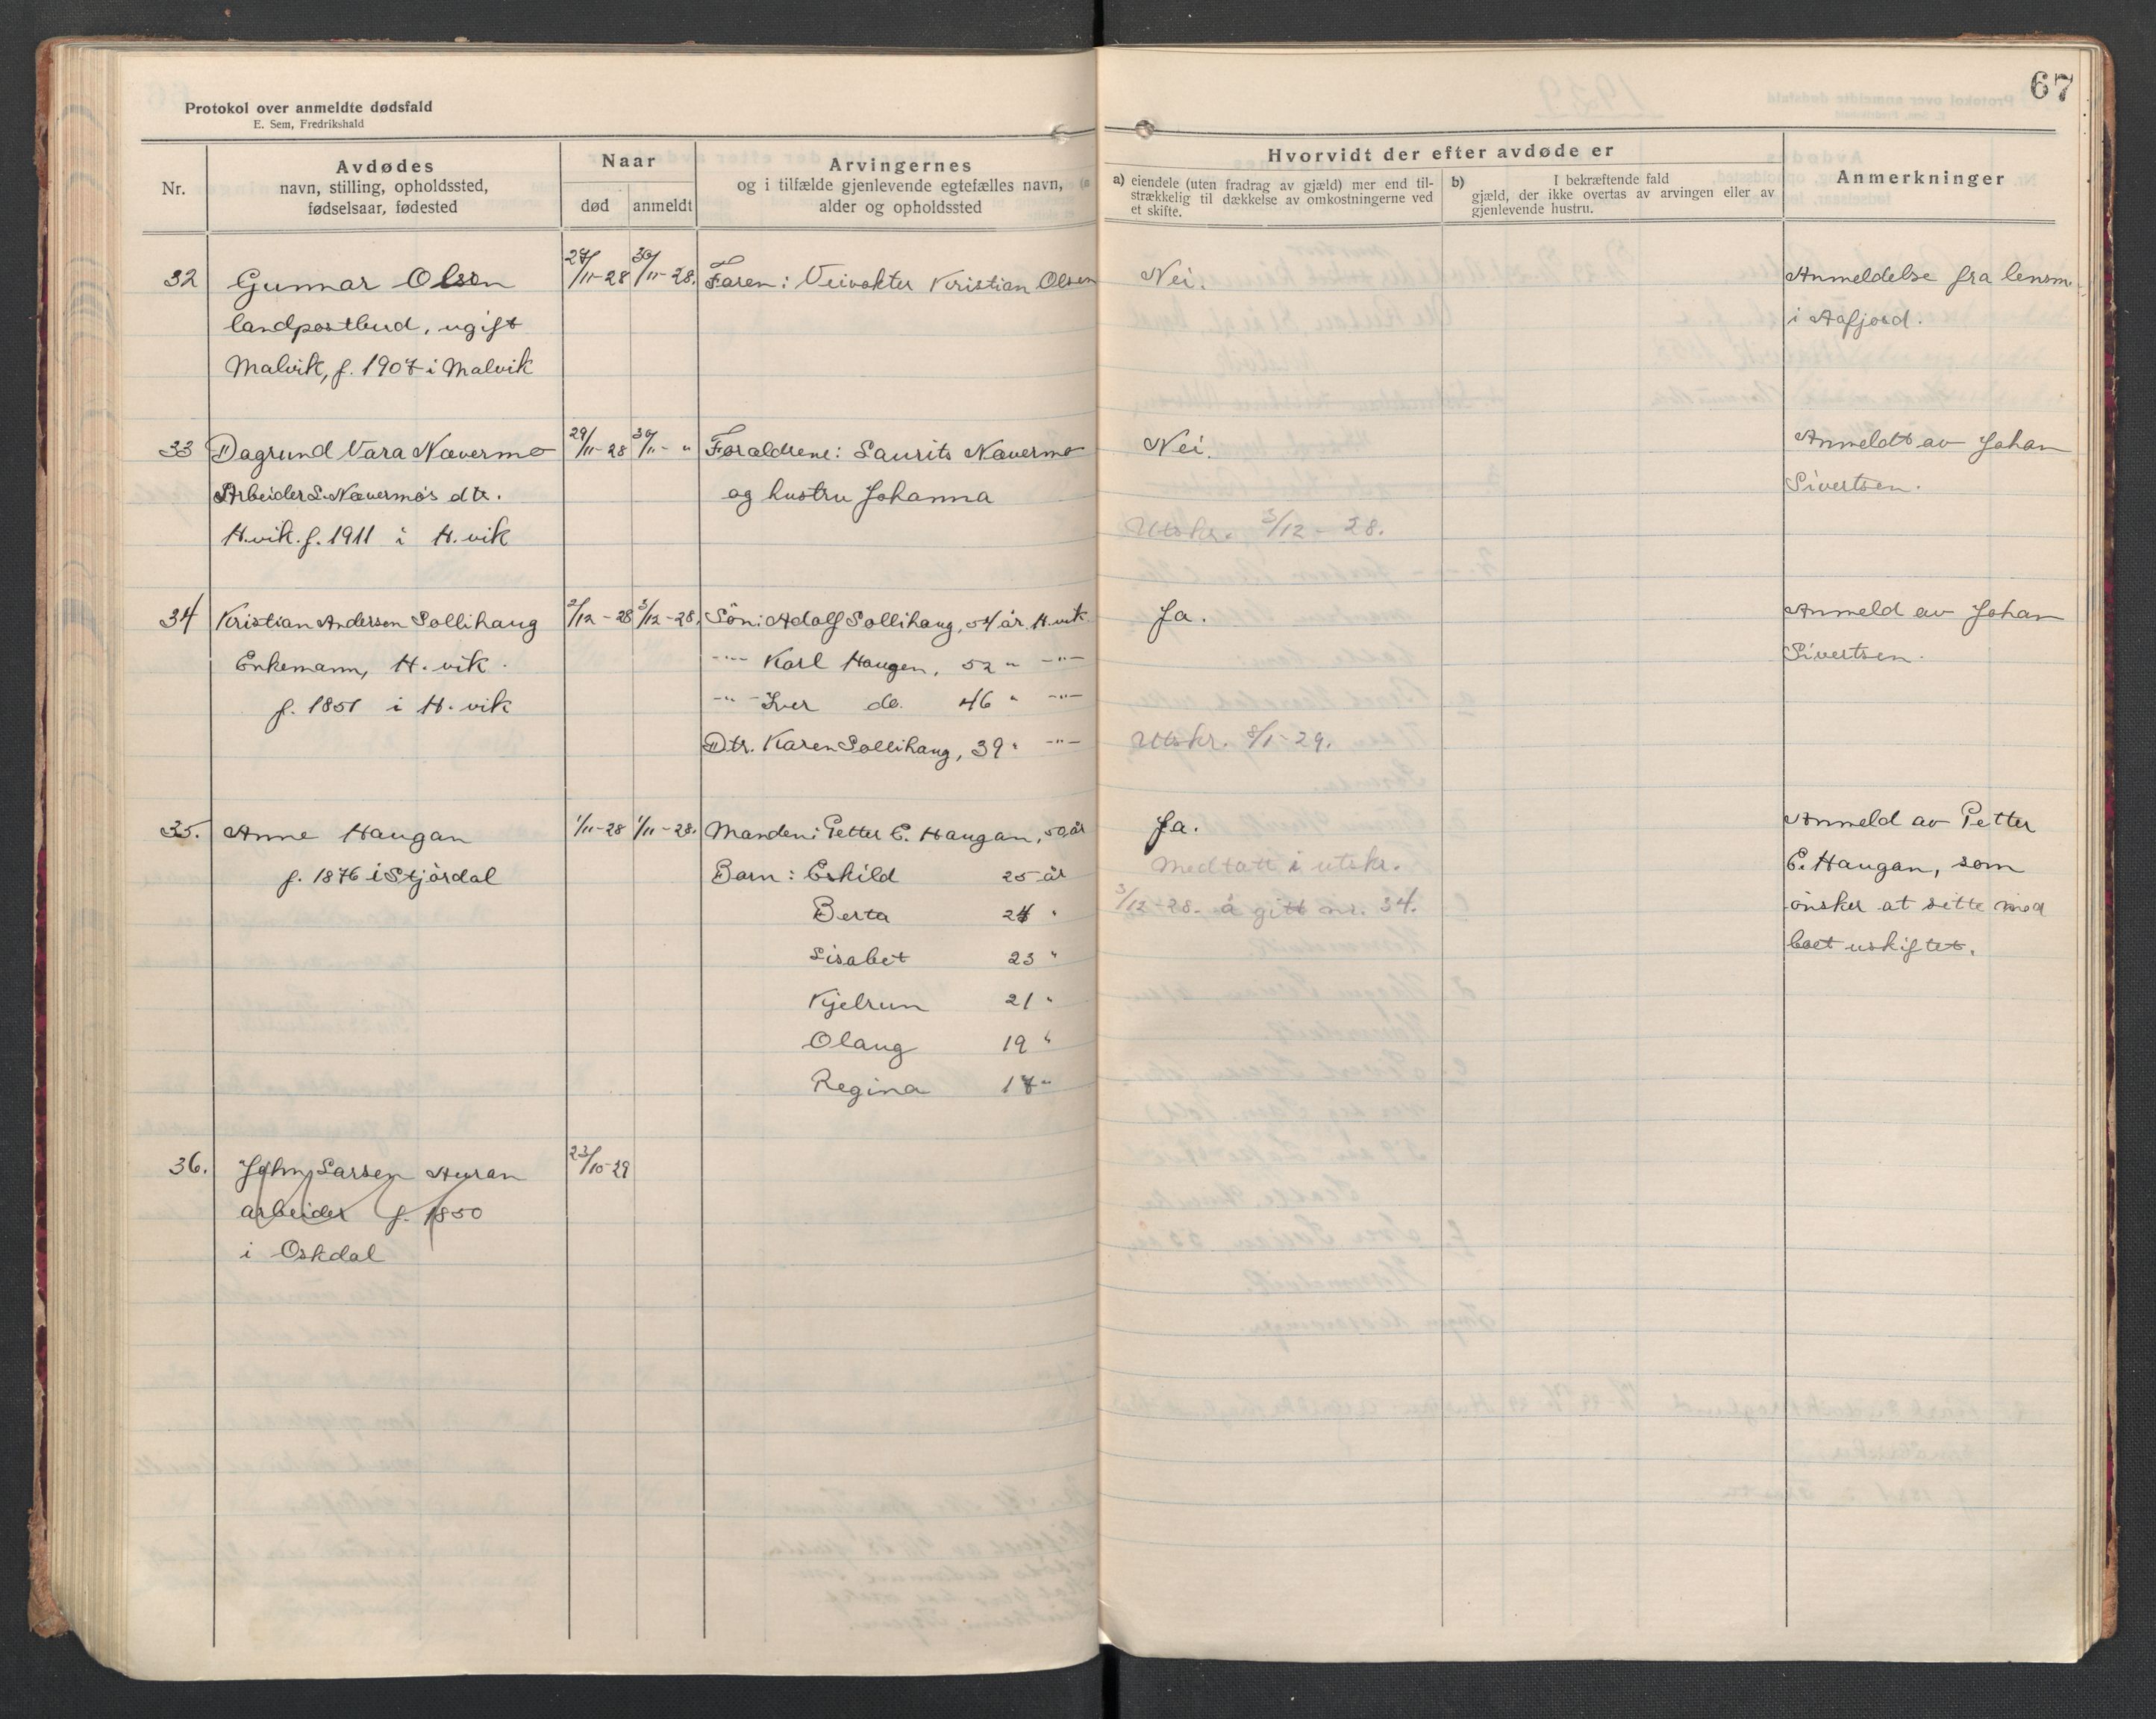 67
Protokol over anmeldte dødsfald
E. Sem, Fredrikshald
Nr.
Avdødes
navn, stilling, opholdssted,
fødselsaar, fødested
Naar
død
anmeldt
Arvingernes
og i tilfælde gjenlevende egtefælles navn,
alder og opholdssted
Hvorvidt der efter avdøde er
a) eiendele (uten fradrag av gjæld) mer end til-
strækkelig til dækkelse av omkostningerne ved
et skifte.
b) I bekræftende fald
gjæld, der ikke overtas av arvingen eller av
gjenlevende hustru.
Anmerkninger
32 Gunnar Olsen 27/11-28 30/11-28. Faren: Veivokter Kristian Olsen Nei. Anmeldelse fra lensm.
landpostbud, ugift i Aafjord.
Malvik, f. 1907 i Malvik
33 Dagrund Vara Nævermo 29/11-28 30/11- " Forældrene: Laurits Nævermo Nei. Anmeldt av Johan
Arbeider L. Nævermo's dtr. og hustru Johanna Sivertsen.
H.vik. f. 1911 i H.vik Utskr. 3/12-28.
34 Kristian Andersen Sollihaug 2/12-28 3/12-28. Søn: Adolf Sollihaug, 54 år. H.vik Ja. Anmeld av Johan
Enkemann, H.vik. -"- Karl Haugen, 52 " -"- Sivertsen.
f. 1851 i H.vik -"- Iver do. 46 " -"-
Dtr. Karen Sollihaug, 39 " -"- Utskr. 8/1-29.
35. Anne Haugan 1/11-28 1/11-28. Manden: Petter E. Haugan, 50 år Ja. Anmeld av Petter
f. 1876 i Stjørdal Barn: Eskild 25 år Medtatt i utskr. E. Haugan, som
Berta 24 " 3/12-28. å gitt nr. 34. ønsker at sitte med
Lisabet 23 " boet uskiftet.
Kjelrun 21 "
Olaug 19 "
Regina 17 "
36. John Larsen Auran 23/10-29
arbeider f. 1850
i Oskdal